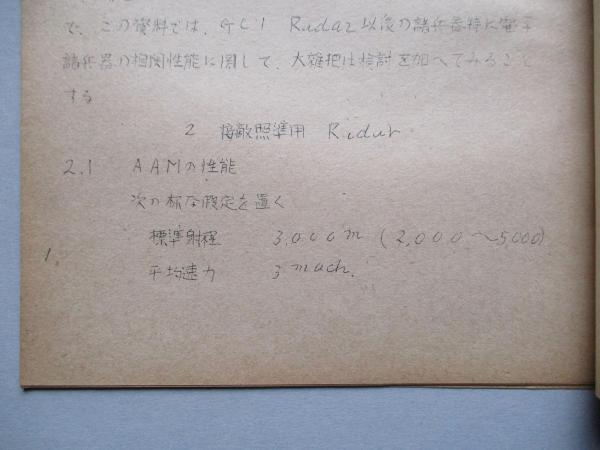 で、この資料では、GCI Radar以後の諸兵器特に電子
諸兵器の相関性能に関して、大雑把な検討を加へてみること
する
2 接敵照準用 Radar
2.1 AAMの性能
次の様な假定を置く
標準射程 3,000m (2,000〜5,000)
平均速力 3 mach.
1.